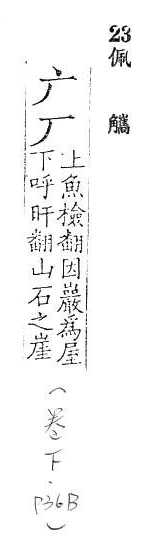 23
佩觿
广厂
上魚檢翻因巖為屋
下呼旰翻山石之崖
(卷下.P36B)